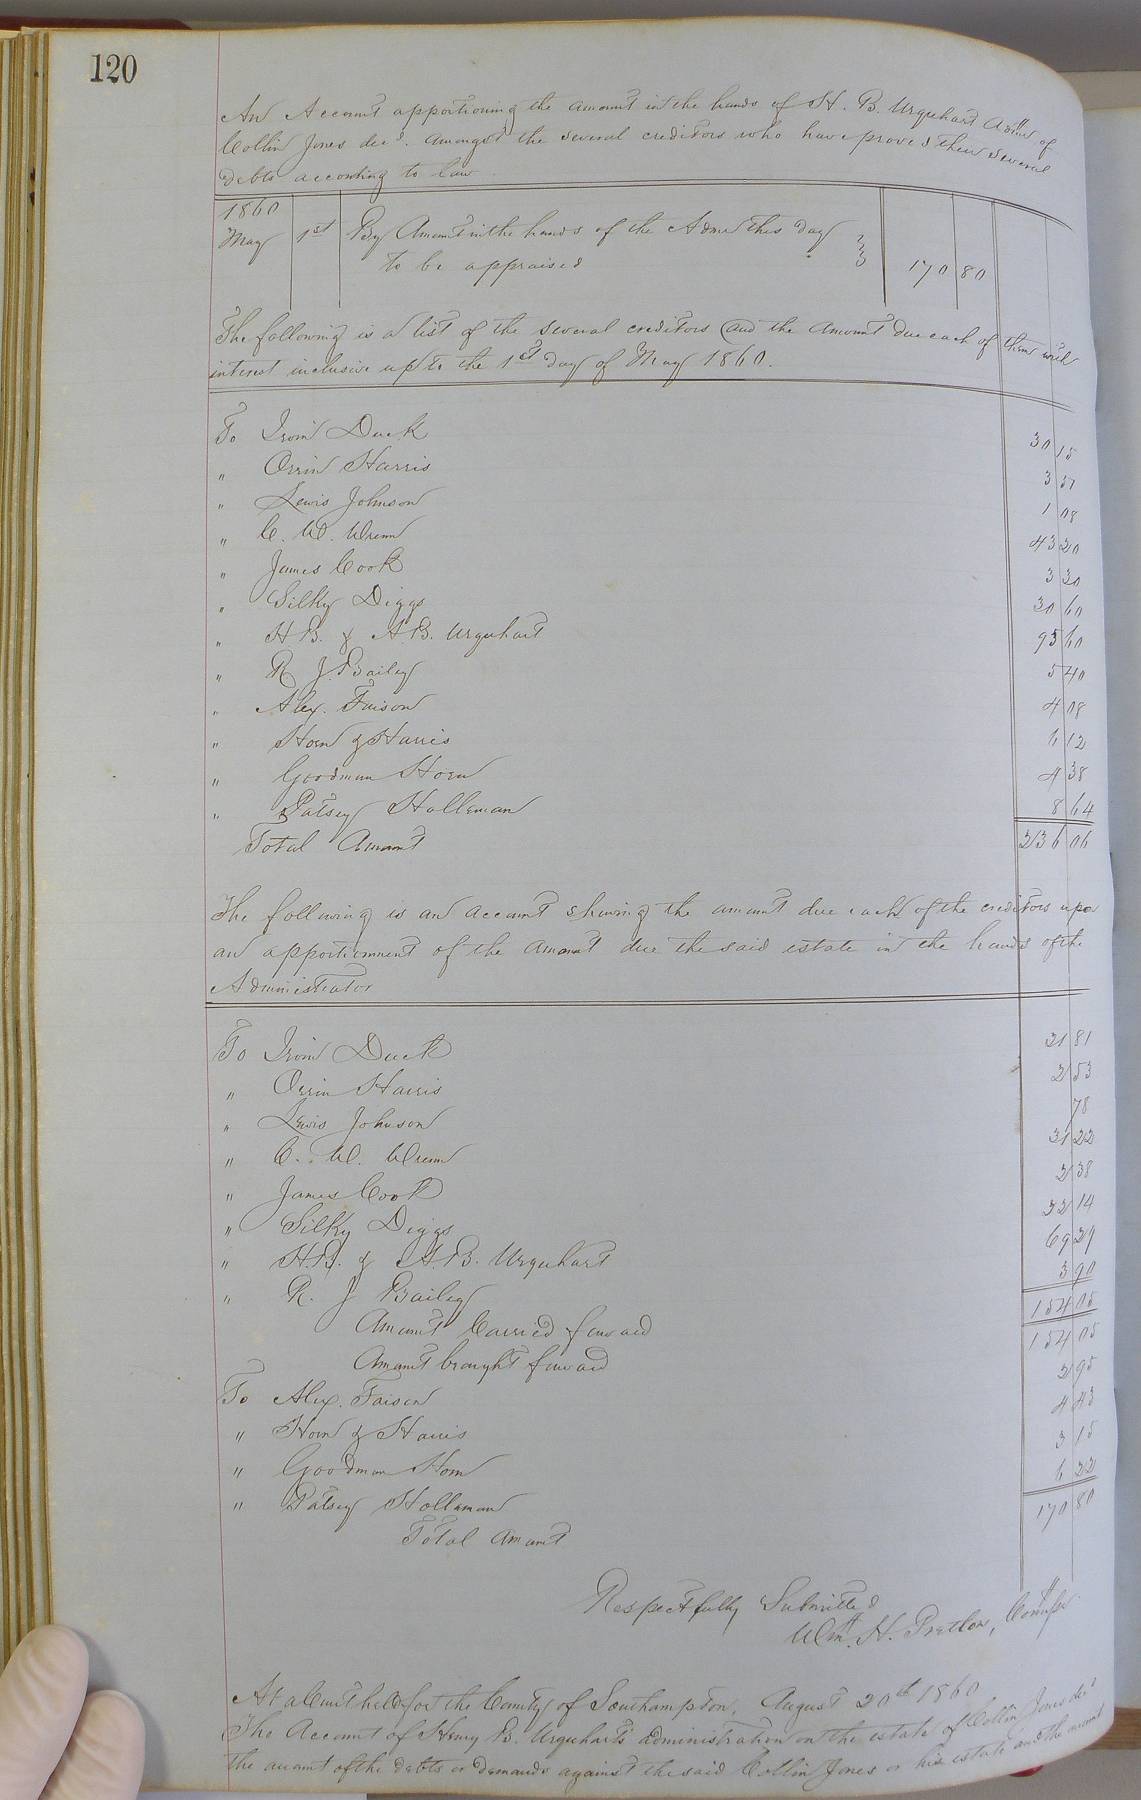 120
An Account apportioning the amount in the hands of H. B. Urquhart Admr of
Collin Jones decd. amongst the several creditors who have proved their several
debts according to law
1860
May 1st By Amount in the hands of the Admr this day
to be appraised 170 80
The following is a list of the several creditors and the amount due each of them with
interest inclusive up to the 1st day of May 1860.
To Irvin Duck 30 15
" Orrin Harris 3 51
" Lewis Johnson 1 08
" C. W. Wrenn 43 20
" James Cook 3 30
" Silky Diggs 30 60
" H B. & A B. Urquhart 95 60
" R J. Bailey 5 40
" Alex. Faison 4 08
" Horn & Harris 6 12
" Goodman Horn 4 38
" Patsey Holleman 8 64
Total Amount 236 06
The following is an account shewing the amount due each of the creditors upon
an apportionment of the amount due the said estate in the hands of the
Administrator
To Irvin Duck 21 81
" Orrin Harris 2 53
" Lewis Johnson 78
" C. W. Wrenn 31 22
" James Cook 2 38
" Silky Diggs 22 14
" H.B. & A.B. Urquhart 69 29
" R. J Bailey 3 90
154 05
Amount Carried forward 154 05
Amount brought forward
To Alex. Faison 2 95
" Horn & Harris 4 43
" Goodman Horn 3 15
" Patsey Holleman 6 22
Total Amount 170 80
Respectfully Submitted
Wm. H. Pretlow, Commsr.
At a Court held for the County of Southampton, August 20th 1860
The Account of Henry B. Urquhart's administration on the estate of Collin Jones decd
the amount of the debts or demands against the said Collin Jones or his estate and the amount